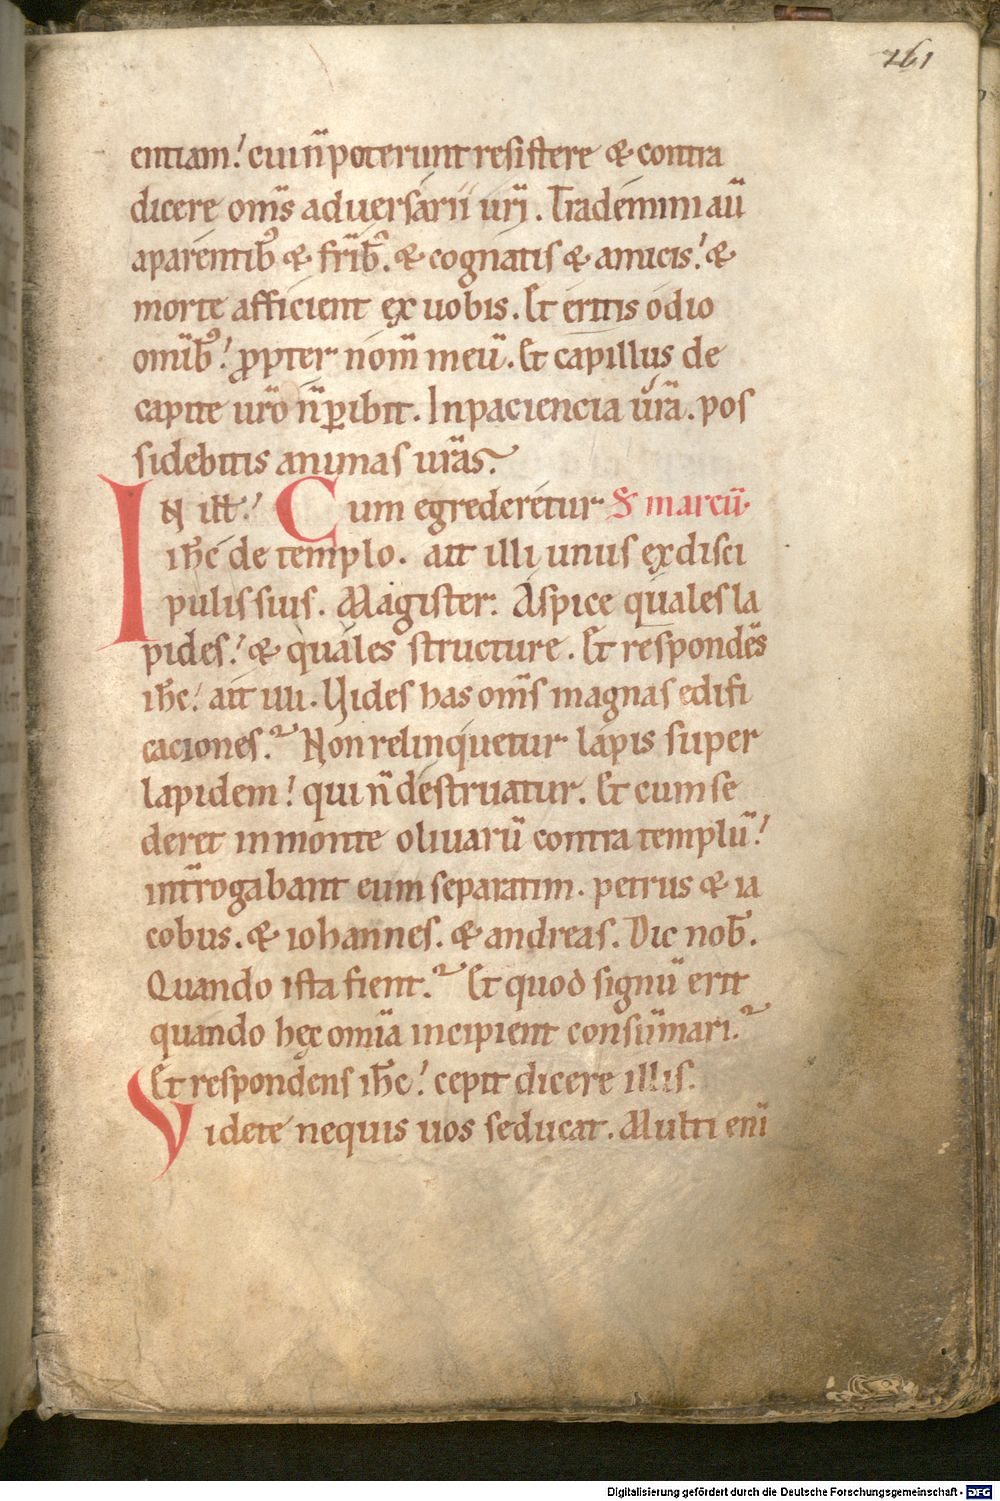 161
entiam! cui n̄ poterunt resistere & contra
dicere om̄s aduersarii ur̄i. Trademini aū
aparentib⁹ & fr̄ib⁹. & cognatis & amicis! &
morte afficient ex uobis. Et eritis odio
omīb⁹! ꝓpter nom̄ meū. Et capillus de
capite ur̄o n̄ ꝑibit. In paciencia ur̄a. pos
sidebitis animas ur̄as.
IN ill̄! Cum egrederetur S̄ marcū.
ih̄c de templo. ait illi unus ex disci
pulis suis. Magister. Aspice quales la
pides! & quales structure. Et respondēs
ih̄c! ait illi. Vides has om̄s magnas edifi
caciones? Non relinquetur lapis super
lapidem! qui n̄ destruatur. Et cum se
deret in monte oliuarū contra templū!
int̄rogabant eum separatim. petrus & ia
cobus. & iohannes. & andreas. Dic nob̄.
Quando ista fient? Et quod signū erit
quando hęc om̄ia incipient consūmari?
Et respondens ih̄c! cepit dicere illis.
Videte nequis uos seducat. Multi enī
Digitalisierung gefördert durch die Deutsche Forschungsgemeinschaft - DFG